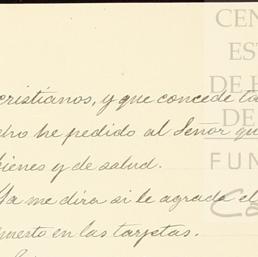 CEN
EST
DE H
DE
FUN
cristianos, y que concede ta
he pedido al Señor qu
bienes y de salud.
Ya me dira si le agrada el
en las tarjetas.